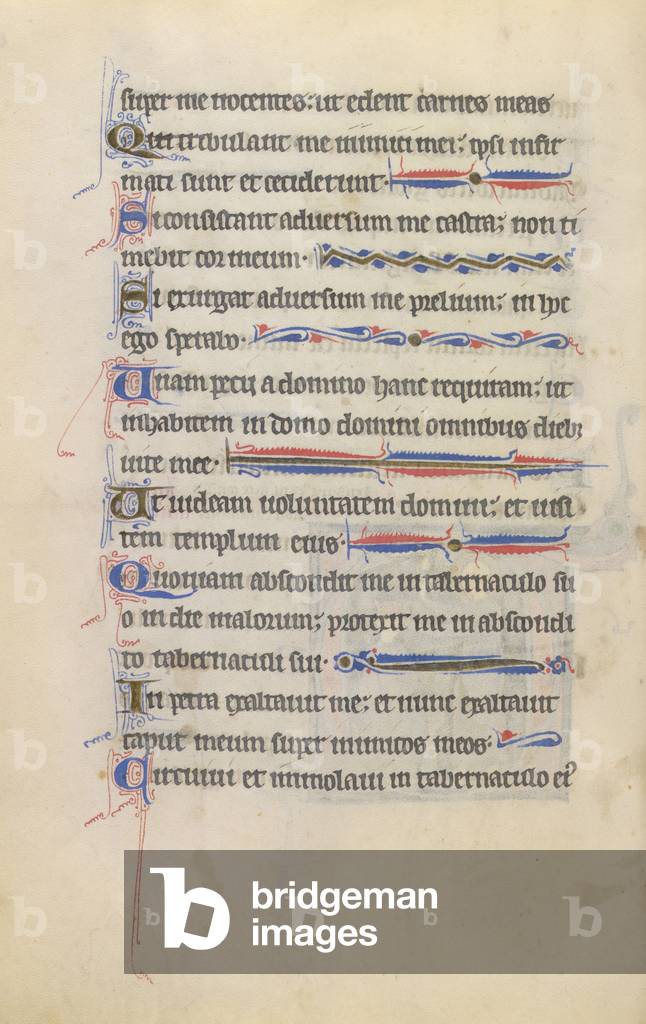 super me nocentes: ut edent carnes meas
Qui tribulant me inimici mei: ipsi infir
mati sunt et ceciderunt.
Si consistant adversum me castra: non ti
mebit cor meum.
Si exurgat adversum me prelium: in hoc
ego sperabo.
Unam pecii a domino hanc requiram: ut
inhabitem in domo domini omnibus dieb;
uite mee.
Ut uideam uoluntatem domini: et uisi
tem templum eius.
Quoniam abscondit me in tabernaculo su
o in die malorum: protexit me in abscondi
to tabernaculi sui.
In petra exaltauit me: et nunc exaltauit
caput meum super inimicos meos.
Circuiui et immolaui in tabernaculo ei⁹
bridgeman
images